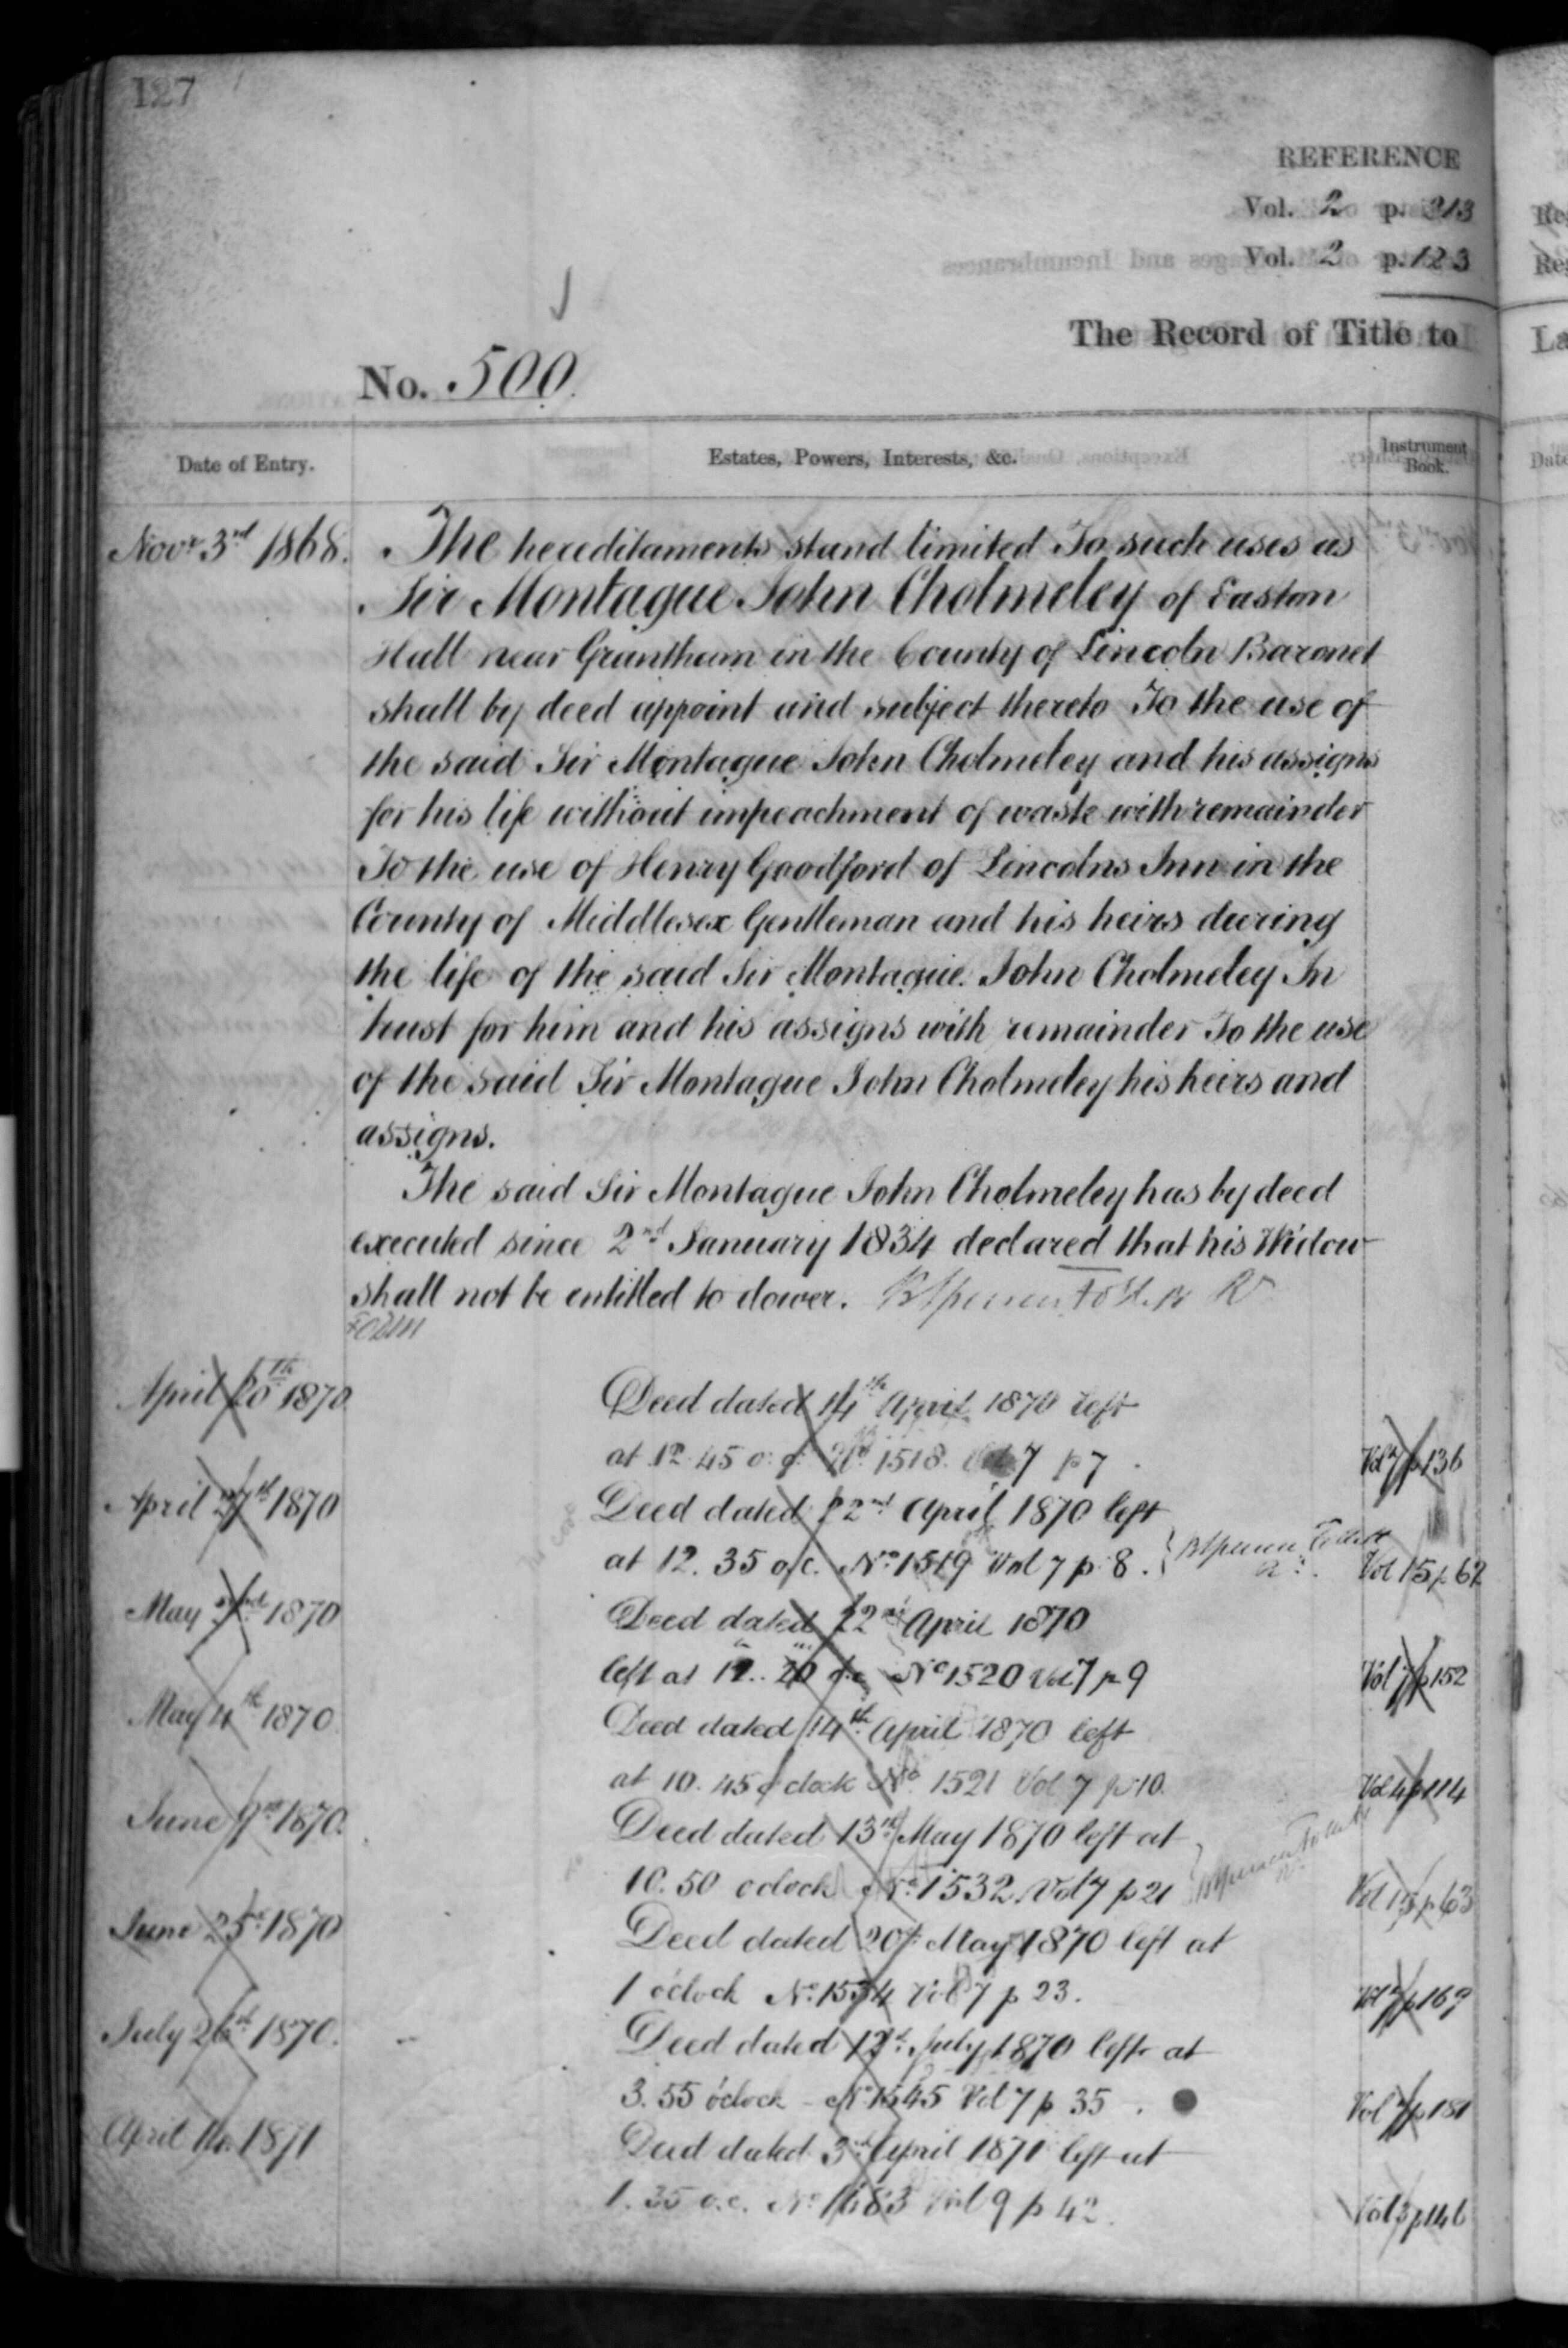 127
REFERENCE
Vol. 2 p. 213
Vol. 2 p. 123
The Record of Title to
No. 500.
Date of Entry. Estates, Powers, Interests, &c. Instrument Book.
Novr 3rd 1868. The hereditaments stand limited To such uses as
Sir Montague John Cholmeley of Easton
Hall near Grantham in the County of Lincoln Baronet
shall by deed appoint and subject thereto To the use of
the said Sir Montague John Cholmeley and his assigns
for his life without impeachment of waste with remainder
To the use of Henry Goodford of Lincolns Inn in the
County of Middlesex Gentleman and his heirs during
the life of the said Sir Montague John Cholmeley In
trust for him and his assigns with remainder To the use
of the said Sir Montague John Cholmeley his heirs and
assigns.
The said Sir Montague John Cholmeley has by deed
executed since 2nd January 1834 declared that his Widow
shall not be entitled to dower.
April 20th 1870 Deed dated 14th April 1870 left
at 12.45 o.c. No 1518. Vol 7 p 7. Vol 7 p 136
April 27th 1870 Deed dated 22nd April 1870 left
at 12.35 o/c. No 1519 Vol 7 p 8. Vol 15 p 62
May 1870 Deed dated 22nd April 1870
left at 12.20 o.c. No 1520 Vol 7 p 9 Vol 7 p 152
May 4th 1870 Deed dated 14th April 1870 left
at 10.45 o'clock No 1521 Vol 7 p 10. Vol 4 p 114
June 1870. Deed dated 13th May 1870 left at
10.50 oclock No 1532 Vol 7 p 21 Vol 15 p 63
June 25th 1870 Deed dated 20th May 1870 left at
1 oclock No 1534 Vol 7 p 23. Vol 7 p 169
July 26th 1870. Deed dated 12th July 1870 left at
3.55 o'clock - No 1545 Vol 7 p 35. Vol 7 p 181
April 1871 Deed dated 3rd April 1871 left at
1.35 o.c. No 1683 Vol 9 p 42. Vol 3 p 146